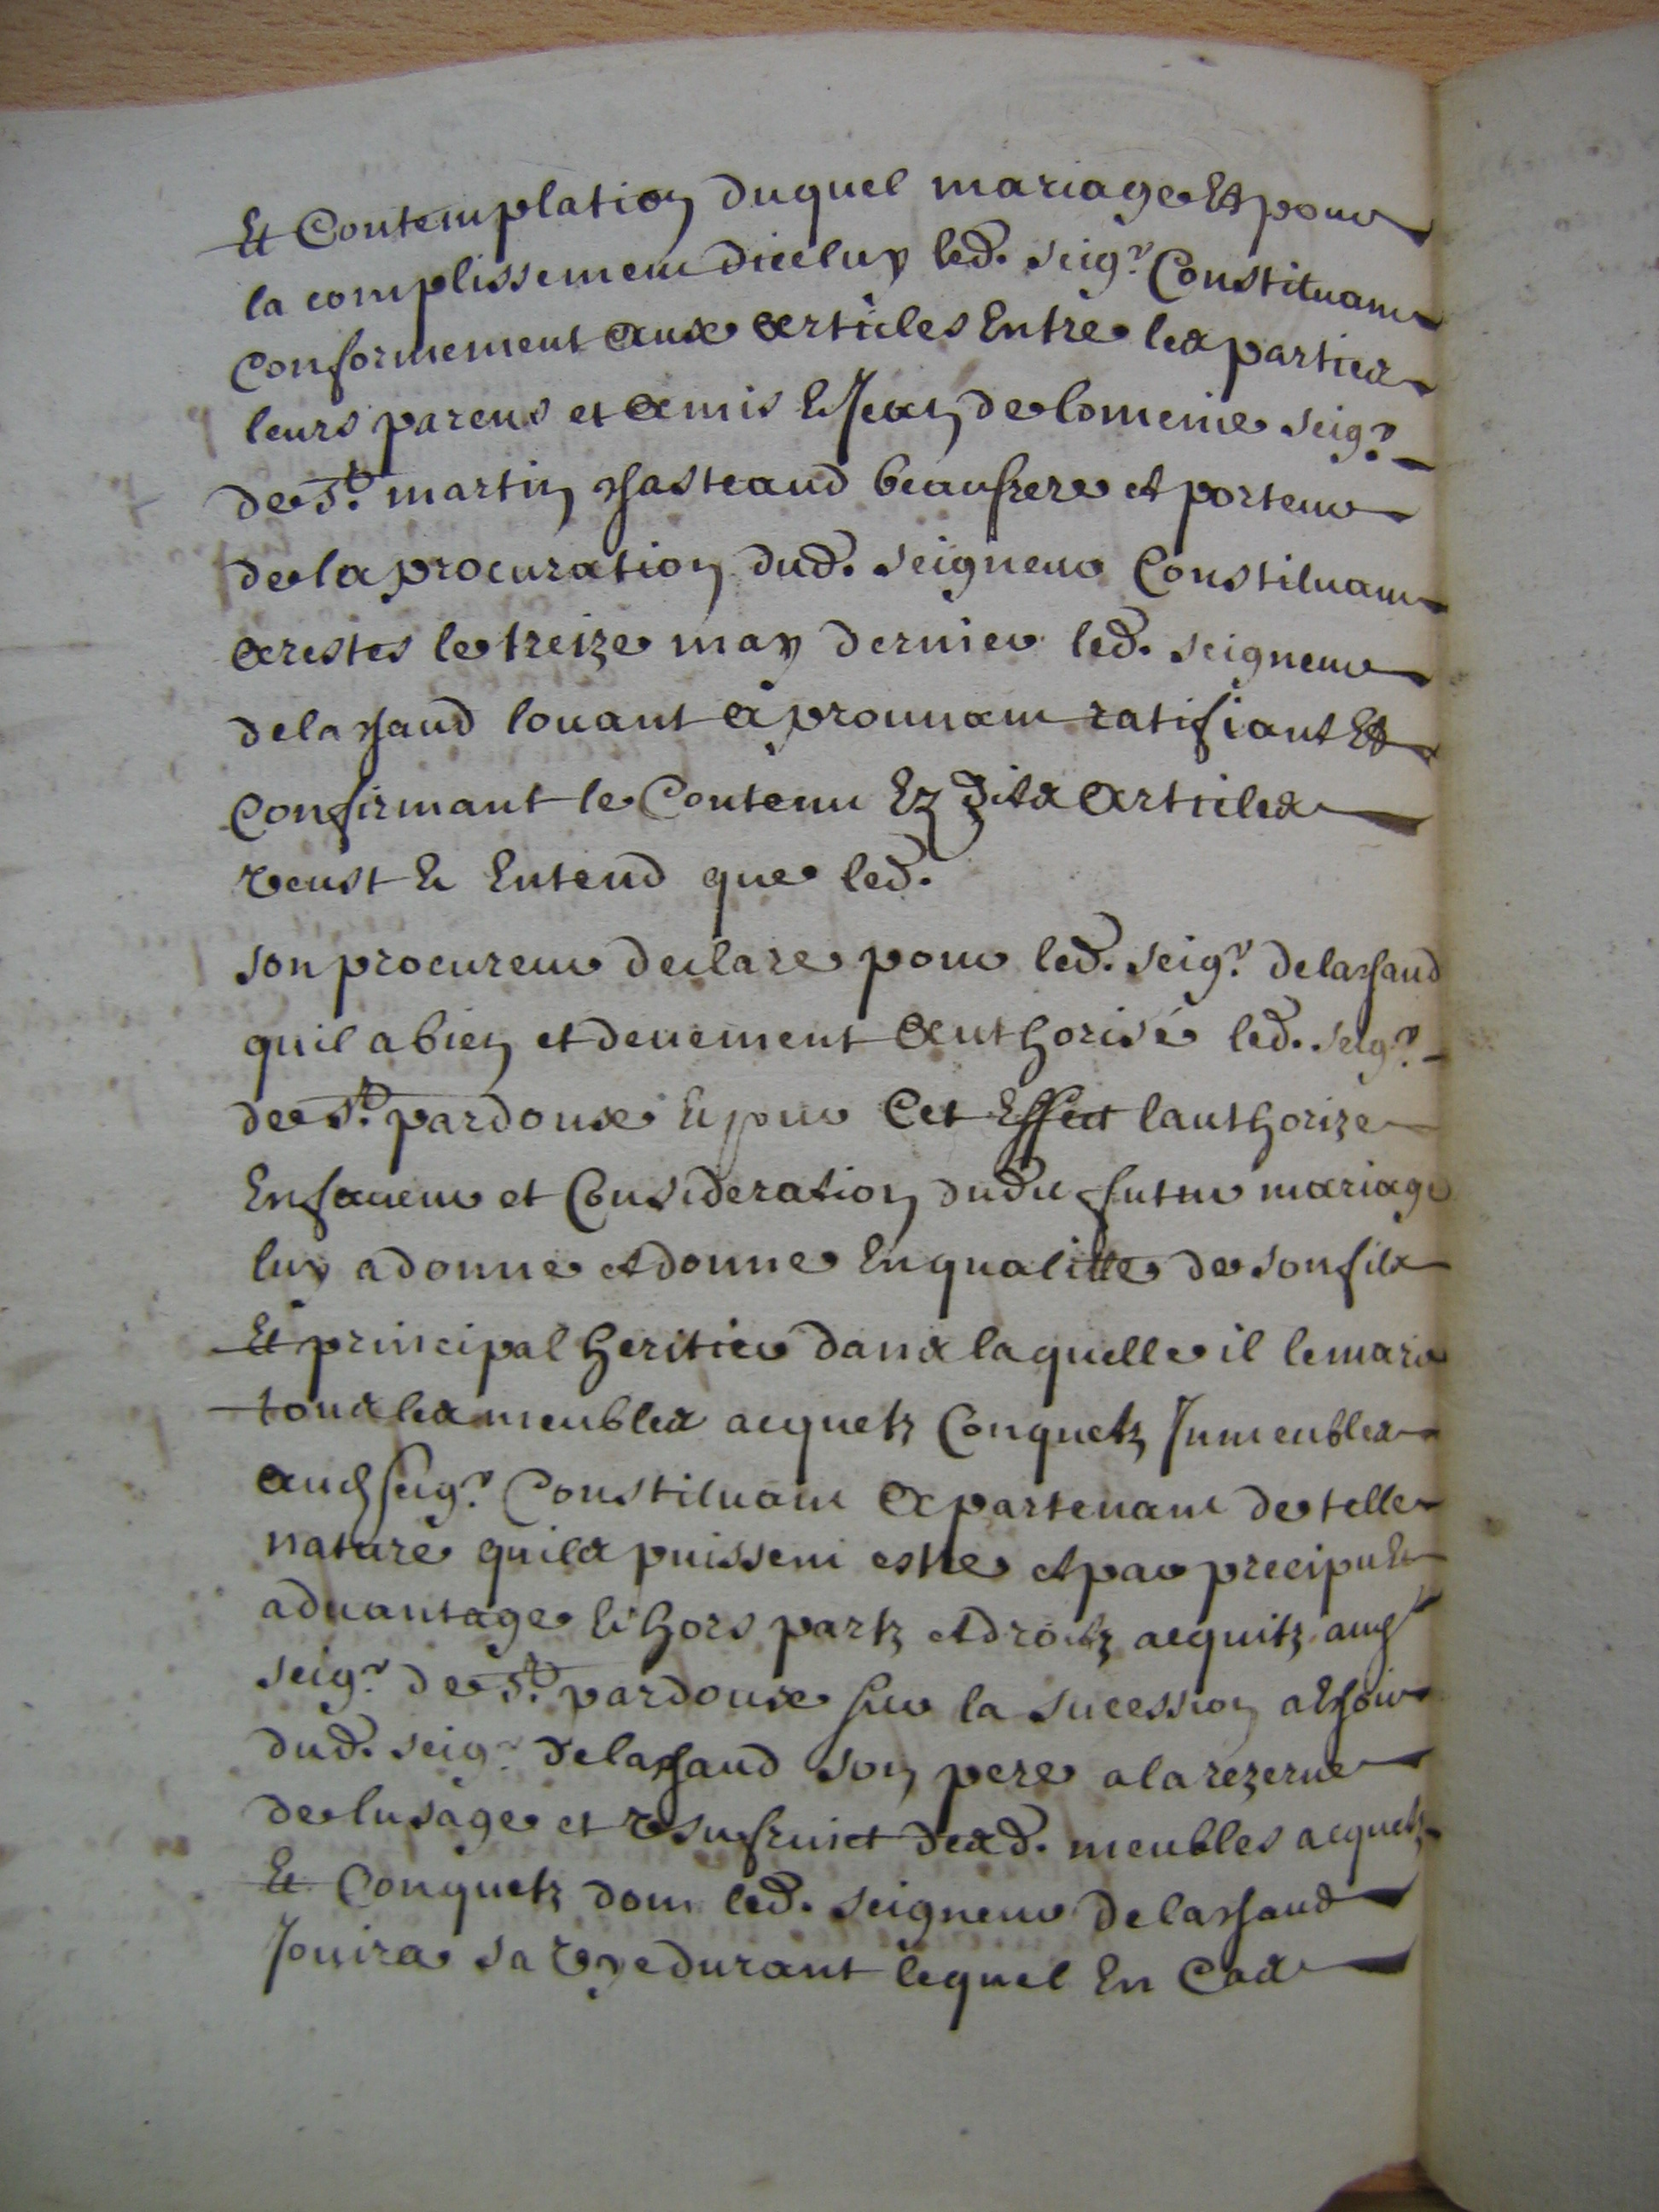 Et Contemplation duquel mariage Et pour
la complissement diceluy led. seigr. Constituant
Conformement aux articles Entre les parties
leurs parens et amis Et Jean de lomenie seigr.
de st. martin chasteaud beaufrere et porteur
de la procuration dud. seigneur Constituant
arestes le treize may dernier led. seigneur
de la faud louant aprouuant ratiffiant Et
Confirmant le Contenu Ez ditz articles
veust Et Entend que led.
son procureur declare pour led. seigr. de lafaud
quil a bien et deuement authorisé led. seigr.
de st. pardoux Et pour Cet Effect lauthorize
En faueur et Consideration dudit futur mariage
luy a donné et donne En qualitté de son filz
Et principal heritier dans laquelle il le marie
tous les meubles acquetz Conquetz Immeubles
audit seigr. Constituant apartenant de telle
nature quilz puissent estre et par precipu Et
aduantage Et hors partz et droitz acquitz audit
seigr. de st. pardoux sur la succession
dud. seigr. de lafaud son pere a la rezerue
de lusage et usufruict desd. meubles acquetz
Et Conquetz dont led. seigneur de lafaud
Jouira sa vye durant lequel En Cas